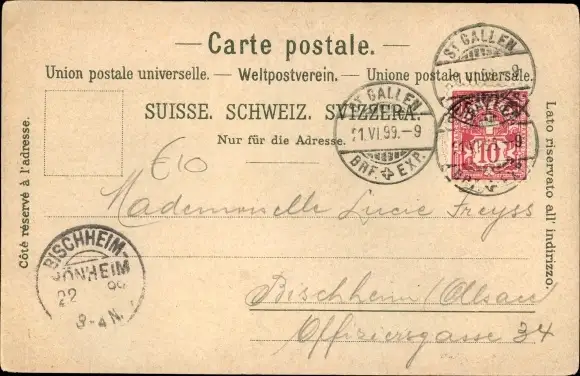 — Carte postale. —
Union postale universelle. — Weltpostverein. — Unione postale universale.
SUISSE. SCHWEIZ. SVIZZERA.
Nur für die Adresse.
Côté réservé à l'adresse.
Lato riservato all' indirizzo.
ST GALLEN
21.VI.99.-9
BRF. EXP.
ST GALLEN
10
E10
Mademoiselle Lucie Freyss
Bischheim (Elsass)
Offiziersgasse 34
BISCHHEIM-
HÖNHEIM
22 99
3-4 N.